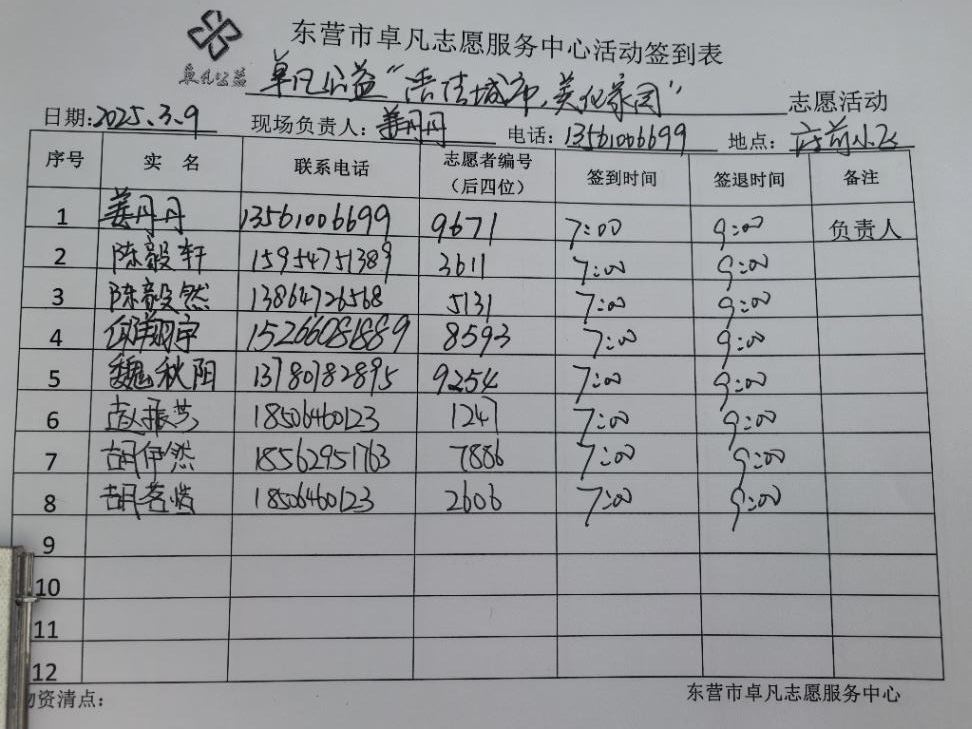 东营市卓凡志愿服务中心活动签到表
卓凡公益
卓凡公益“洁佳城市,美化家园” 志愿活动
日期:2025.3.9 现场负责人:姜丹丹 电话:13561006699 地点:府前小区
序号 实名 联系电话 志愿者编号（后四位） 签到时间 签退时间 备注
1 姜丹丹 13561006699 9671 7:00 9:00 负责人
2 陈毅轩 15954751389 3611 7:00 9:00
3 陈毅然 13864726568 5131 7:00 9:00
4 翔宇 15266081889 8593 7:00 9:00
5 魏秋阳 13780782895 9254 7:00 9:00
6 赵振芳 18506460123 1247 7:00 9:00
7 胡伊然 18562951763 7886 7:00 9:00
8 胡茗 18506460123 2606 7:00 9:00
9
10
11
12
物资清点：
东营市卓凡志愿服务中心